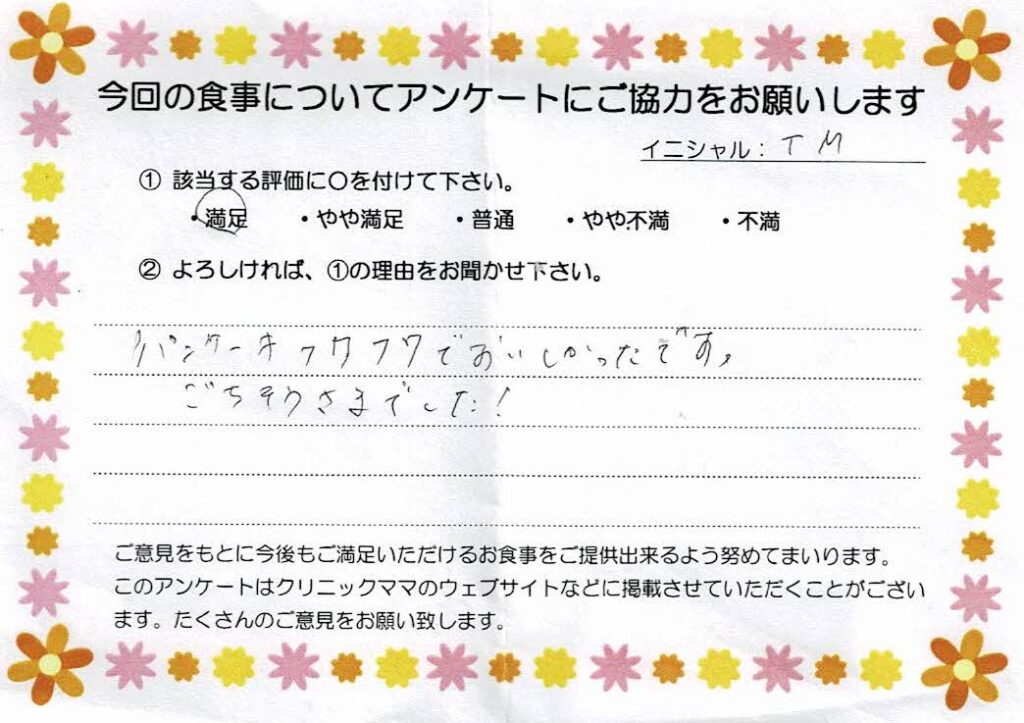 今回の食事についてアンケートにご協力をお願いします
イニシャル：T M
① 該当する評価に〇を付けて下さい。
・満足 ・やや満足 ・普通 ・やや不満 ・不満
② よろしければ、①の理由をお聞かせ下さい。
パンケーキフワフワでおいしかったです。
ごちそうさまでした！
ご意見をもとに今後もご満足いただけるお食事をご提供出来るよう努めてまいります。
このアンケートはクリニックママのウェブサイトなどに掲載させていただくことがござい
ます。たくさんのご意見をお願い致します。